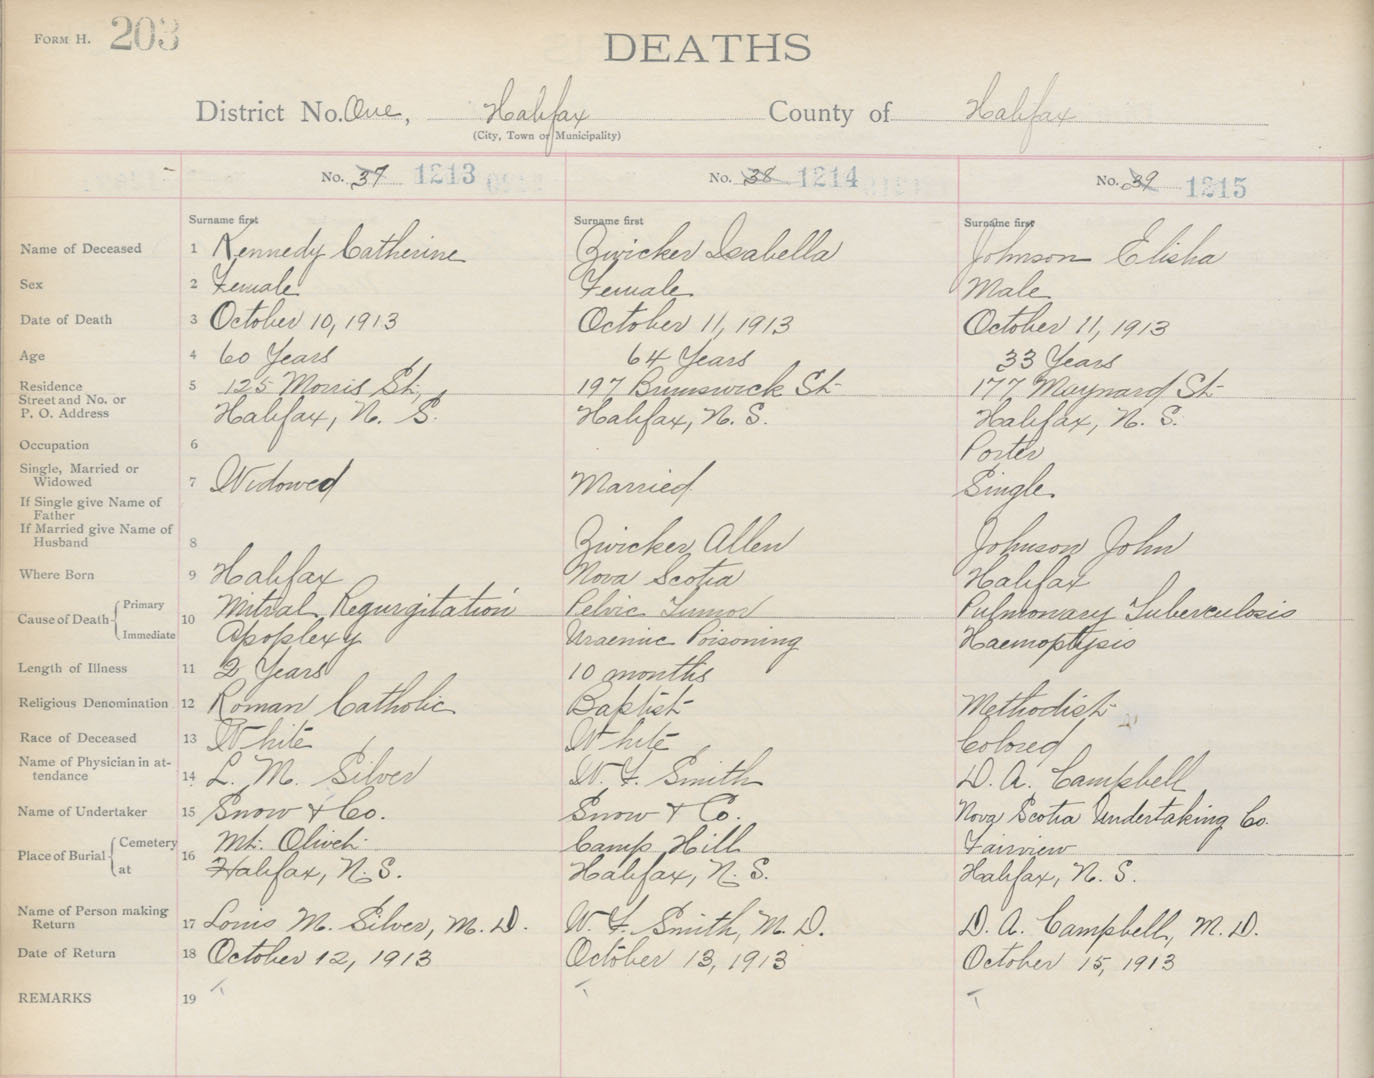 FORM H. 203
DEATHS
District No. One, Halifax County of Halifax
(City, Town or Municipality)
No. 37 1213 No. 38 1214 No. 39 1215
Surname first Surname first Surname first
Name of Deceased 1 Kennedy Catherine Zwicker Isabella Johnson Elisha
Sex 2 Female Female Male
Date of Death 3 October 10, 1913 October 11, 1913 October 11, 1913
Age 4 60 Years 64 Years 33 Years
Residence 5 125 Morris St., 197 Brunswick St 177 Maynard St
Street and No. or
P. O. Address Halifax, N. S. Halifax, N. S. Halifax, N. S.
Occupation 6 Porter
Single, Married or
Widowed 7 Widowed Married Single
If Single give Name of
Father
If Married give Name of
Husband 8 Zwicker Allen Johnson John
Where Born 9 Halifax Nova Scotia Halifax
Cause of Death Primary 10 Mitral Regurgitation Pelvic Tumor Pulmonary Tuberculosis
Immediate Apoplexy Uraemic Poisoning Haemoptysis
Length of Illness 11 2 Years 10 months
Religious Denomination 12 Roman Catholic Baptist Methodist
Race of Deceased 13 White White Colored
Name of Physician in at-
tendance 14 L. M. Silver W. F. Smith D. A. Campbell
Name of Undertaker 15 Snow & Co. Snow & Co. Nova Scotia Undertaking Co.
Place of Burial Cemetery 16 Mt. Olivet Camp Hill Fairview
at Halifax, N. S. Halifax, N. S. Halifax, N. S.
Name of Person making
Return 17 Louis M. Silver, M. D. W. F. Smith, M. D. D. A. Campbell, M. D.
Date of Return 18 October 12, 1913 October 13, 1913 October 15, 1913
REMARKS 19